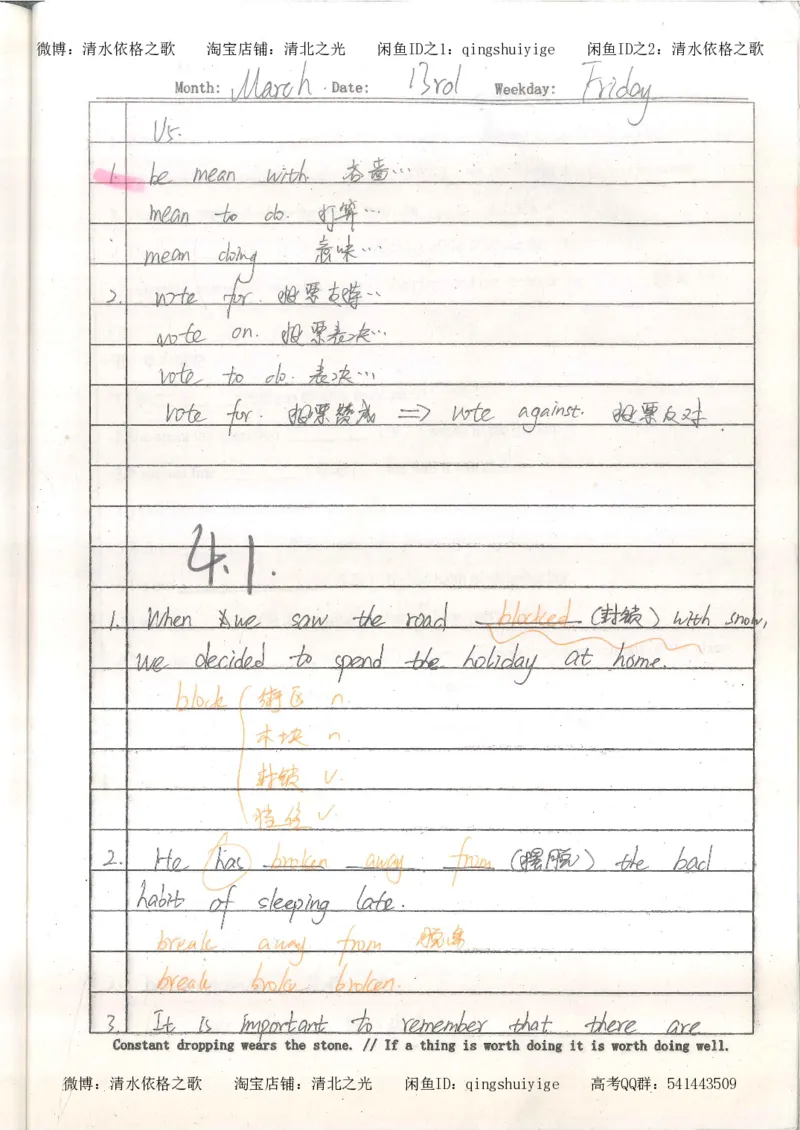 微博：清水依格之歌 淘宝店铺：清北之光 闲鱼ID之1：qingshuiyige 闲鱼ID之2：清水依格之歌
Month: March Date: 13rd Weekday: Friday
U5.
1. be mean with 吝啬…
mean to do. 打算…
mean doing 意味…
2. vote for. 投票支持…
vote on. 投票表决…
vote to do. 表决…
vote for. 投票赞成 => vote against. 投票反对
4.1.
1. When we saw the road blocked (封锁) with snow,
we decided to spend the holiday at home.
block { 街区 n.
木块 n.
封锁 v.
挡住 v.
2. He has broken away from (摆脱) the bad
habit of sleeping late.
break away from 脱离
break broke broken.
3. It is important to remember that there are
Constant dropping wears the stone. // If a thing is worth doing it is worth doing well.
微博：清水依格之歌 淘宝店铺：清北之光 闲鱼ID：qingshuiyige 高考QQ群：541443509